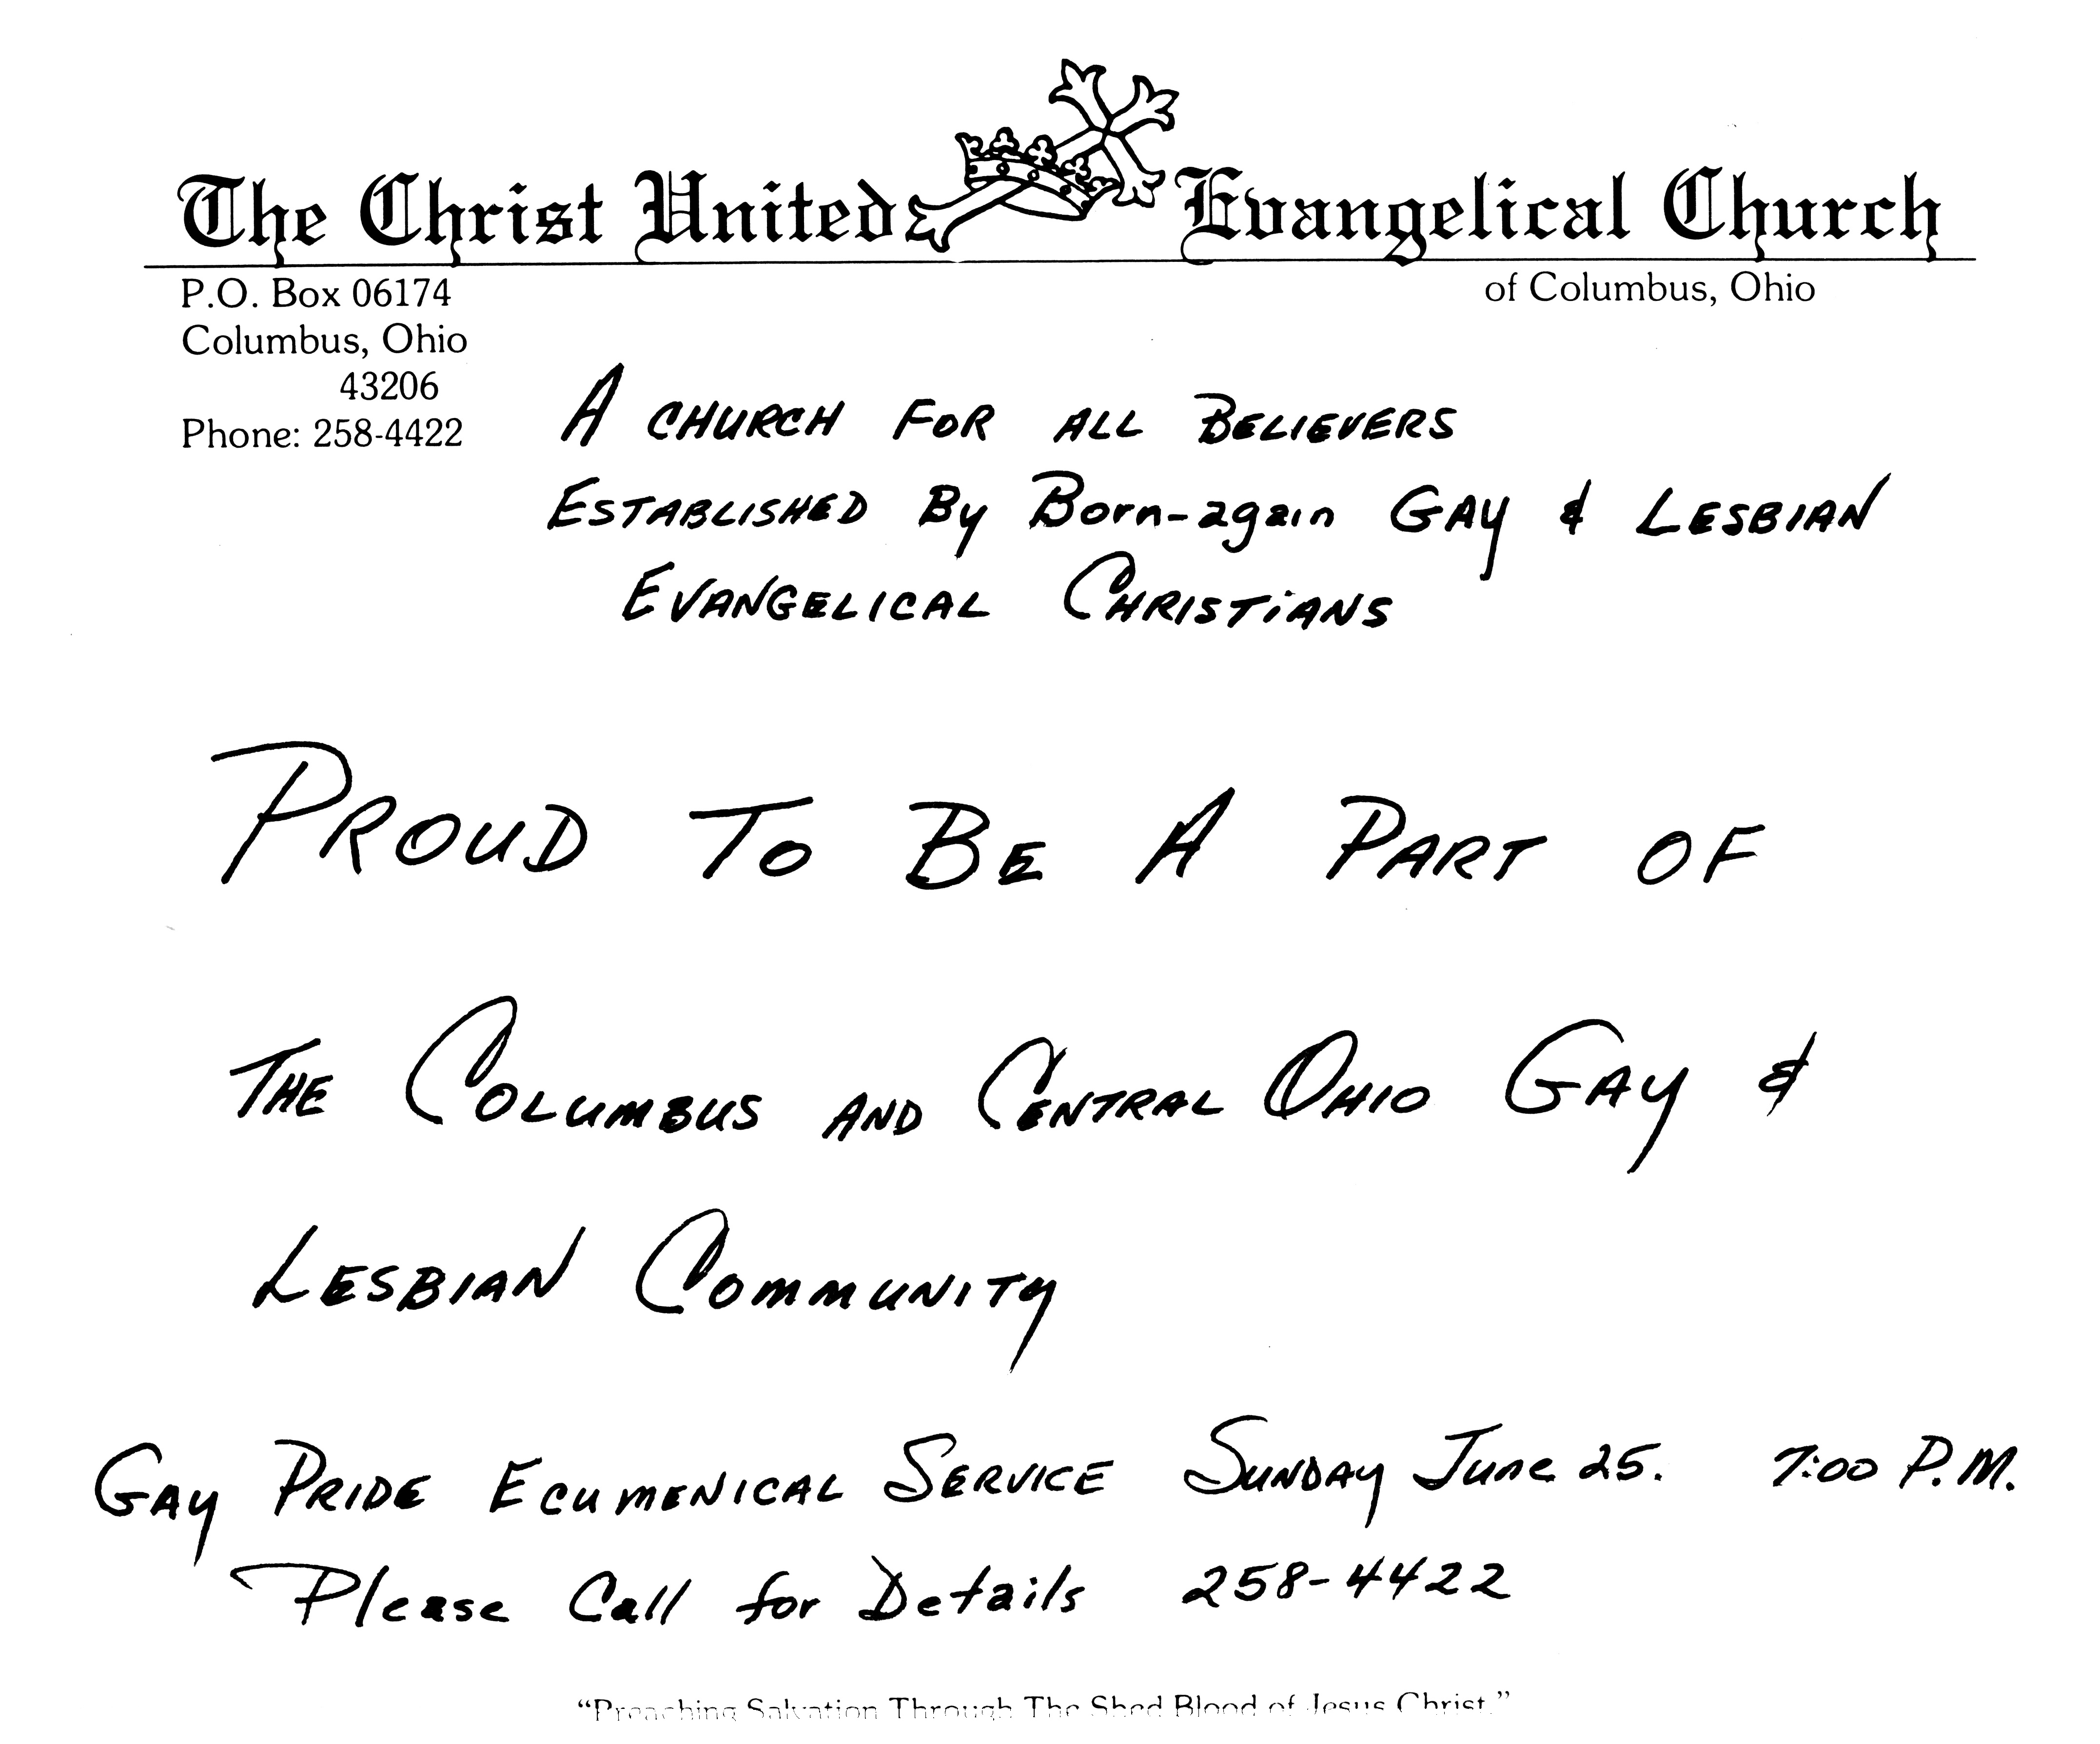 The Christ United Evangelical Church
of Columbus, Ohio
P.O. Box 06174
Columbus, Ohio
43206
Phone: 258-4422
A CHURCH FOR ALL BELIEVERS
ESTABLISHED By Born-again GAY & LESBIAN
EVANGELICAL CHRISTIANS
PROUD TO BE A PART OF
THE COLUMBUS AND CENTRAL OHIO GAY &
LESBIAN COMMUNITY
GAY PRIDE ECUMENICAL SERVICE SUNDAY June 25. 7:00 P.M.
Please Call for Details 258-4422
“Preaching Salvation Through The Shed Blood of Jesus Christ.”